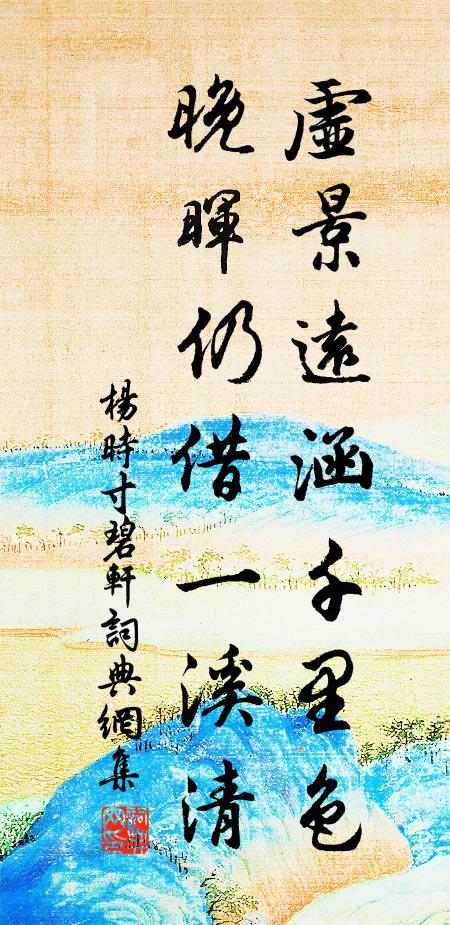 虛景遠涵千里色
晚暉仍借一溪清
楊時寸碧軒詞典網集